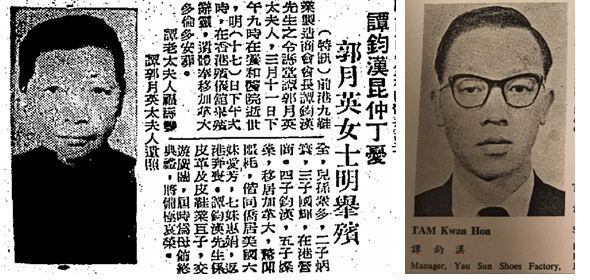 譚鈞漢昆仲丁憂
郭月英女士明舉殯
(特訊)前港九鞋
業製造商會會長譚鈞漢
先生之令壽堂譚郭月英
太夫人,三月十一日下
午九時在養和醫院逝世
,明(十七)日下午弍
時,在香港殯儀館舉殯
辭靈,遺體奉移加拿大
多倫多安葬。
譚老太夫人福壽雙
全,兒孫衆多,二子炳
寰,三子國輝,在港營
商。四子鈞漢,五子燦
榮,移居加拿大,驚聞
噩耗,偕同僑居美國六
妹愛芳,七妹惠娟,返
港奔喪。譚鈞漢先生係
皮革及皮鞋業巨子,交
游廣闊,屆時爲母飾終
典禮,將備極哀榮。
譚郭月英太夫人遺照
TAM Kwan Hon
譚 鈞 漢
Manager, Yau Sun Shoes Factory,